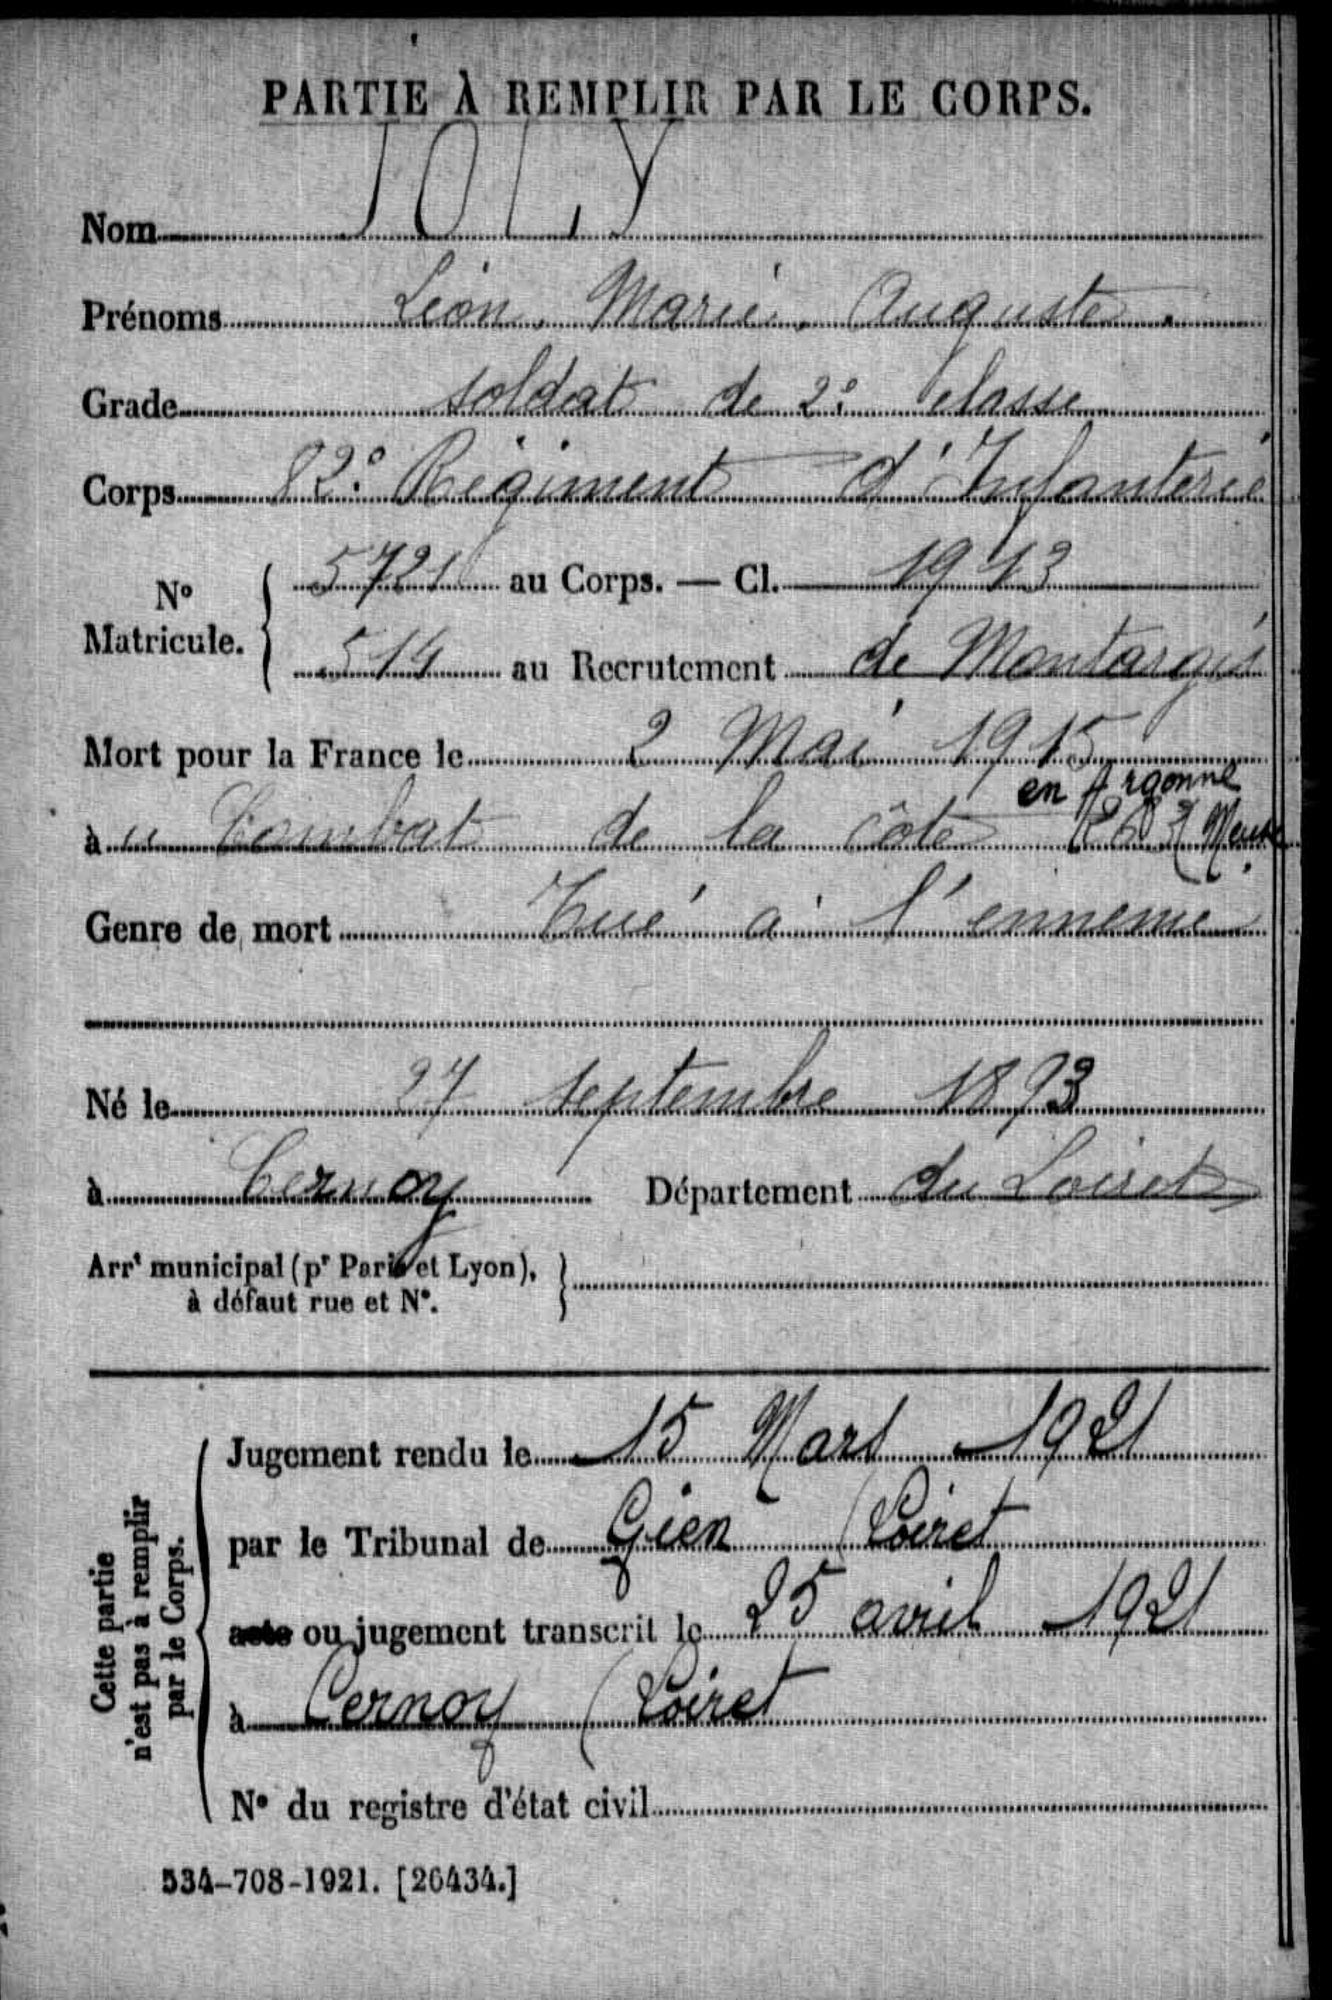 PARTIE À REMPLIR PAR LE CORPS.
Nom JOLY
Prénoms Léon, Marie, Auguste.
Grade soldat de 2e classe
Corps 82e Régiment d'Infanterie
No Matricule. 5721 au Corps. — Cl. 1913
514 au Recrutement de Montargis
Mort pour la France le 2 Mai 1915
en Argonne
à u Combat de la côte (Meuse
Genre de mort Tué à l'ennemi
Né le 27 septembre 1893
à Cernoy Département du Loiret
Arrt municipal (pr Paris et Lyon),
à défaut rue et No.
Cette partie
n'est pas à remplir
par le Corps.
Jugement rendu le 15 Mars 1921
par le Tribunal de Gien (Loiret
acte ou jugement transcrit le 25 avril 1921
à Cernoy (Loiret
No du registre d'état civil
534-708-1921. [26434.]